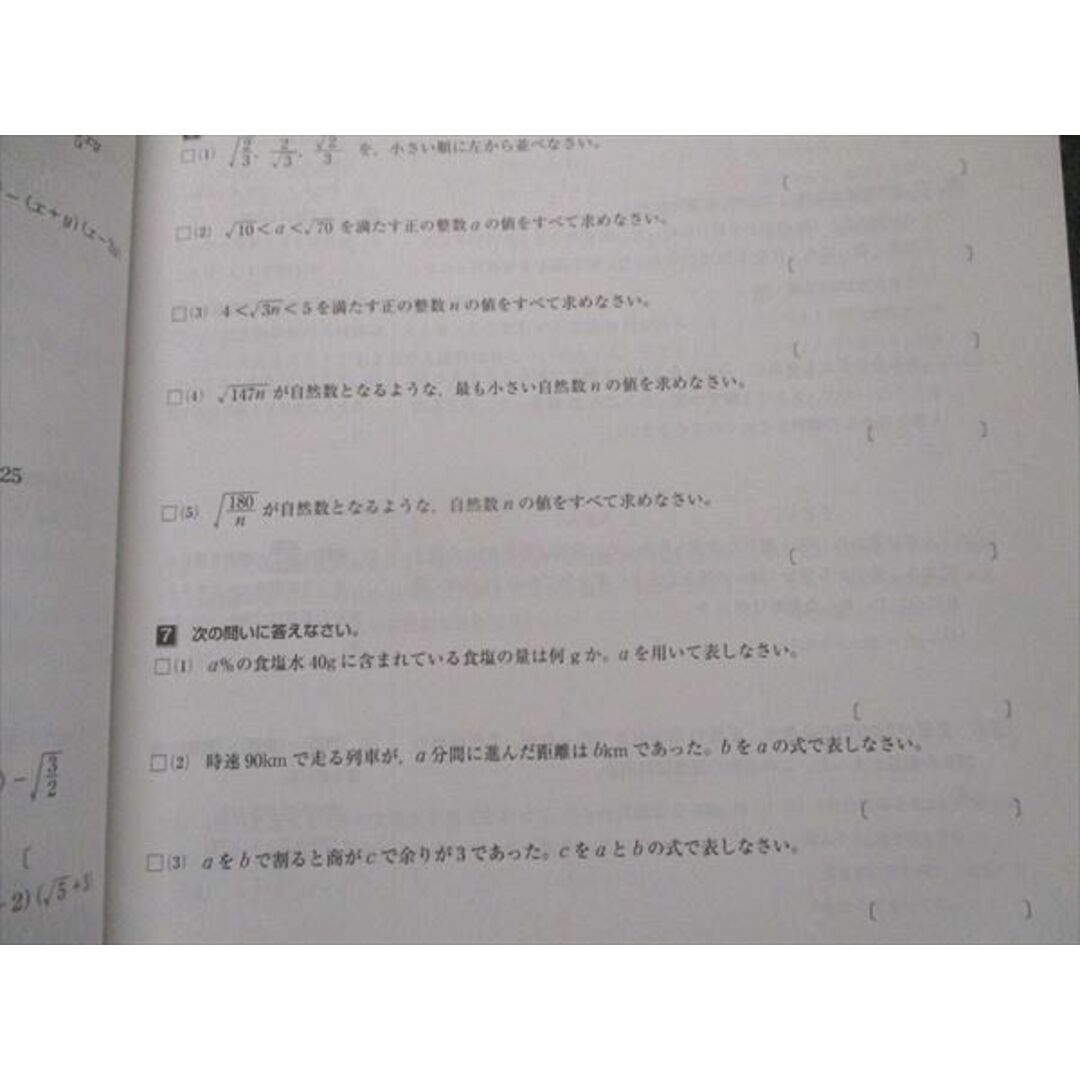 − (x+y)(x−
25
) − √(3/2)
〔
−2)(√5+3
□(1) √(2/3), 2/√3, √2/3 を、小さい順に左から並べなさい。
〔 〕
□(2) √10＜a＜√70 を満たす正の整数aの値をすべて求めなさい。
〔 〕
□(3) 4＜√3n＜5を満たす正の整数nの値をすべて求めなさい。
〔 〕
□(4) √147n が自然数となるような、最も小さい自然数nの値を求めなさい。
〔 〕
□(5) √(180/n) が自然数となるような、自然数nの値をすべて求めなさい。
〔 〕
7 次の問いに答えなさい。
□(1) a％の食塩水40gに含まれている食塩の量は何gか。aを用いて表しなさい。
〔 〕
□(2) 時速90kmで走る列車が、a分間に進んだ距離はbkmであった。bをaの式で表しなさい。
〔 〕
□(3) aをbで割ると商がcで余りが3であった。cをaとbの式で表しなさい。
〔 〕